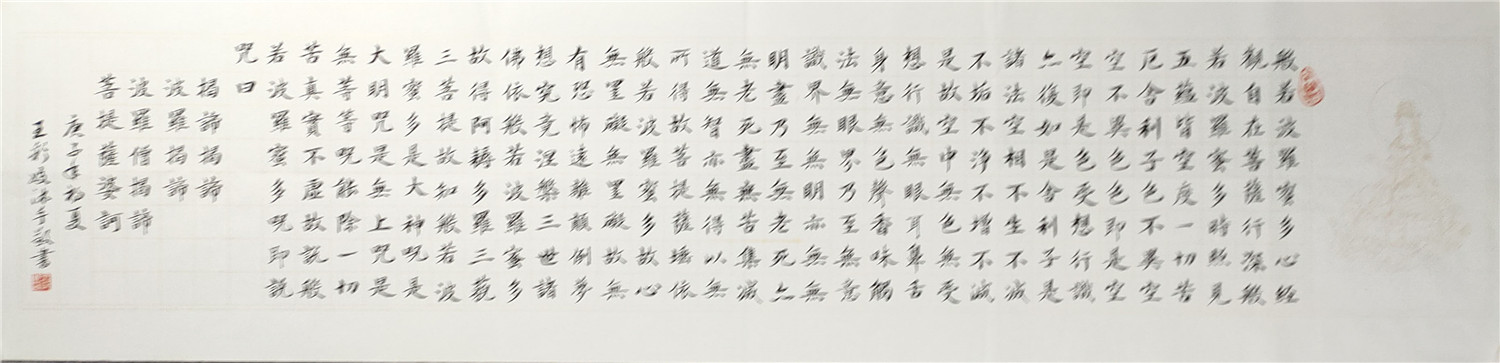 般若波羅蜜多心經
觀自在菩薩行深般
若波羅蜜多時照見
五蘊皆空度一切苦
厄舍利子色不異空
空不異色色即是空
空即是色受想行識
亦復如是舍利子是
諸法空相不生不滅
不垢不淨不增不減
是故空中無色無受
想行識無眼耳鼻舌
身意無色聲香味觸
法無眼界乃至無意
識界無無明亦無無
明盡乃至無老死亦
無老死盡無苦集滅
道無智亦無得以無
所得故菩提薩埵依
般若波羅蜜多故心
無罣礙無罣礙故無
有恐怖遠離顛倒夢
想究竟涅槃三世諸
佛依般若波羅蜜多
故得阿耨多羅三藐
三菩提故知般若波
羅蜜多是大神呪是
大明呪是無上呪是
無等等呪能除一切
苦真實不虛故說般
若波羅蜜多呪即說
呪曰
揭諦揭諦
波羅揭諦
波羅僧揭諦
菩提薩婆訶
庚子年初夏
王彩書